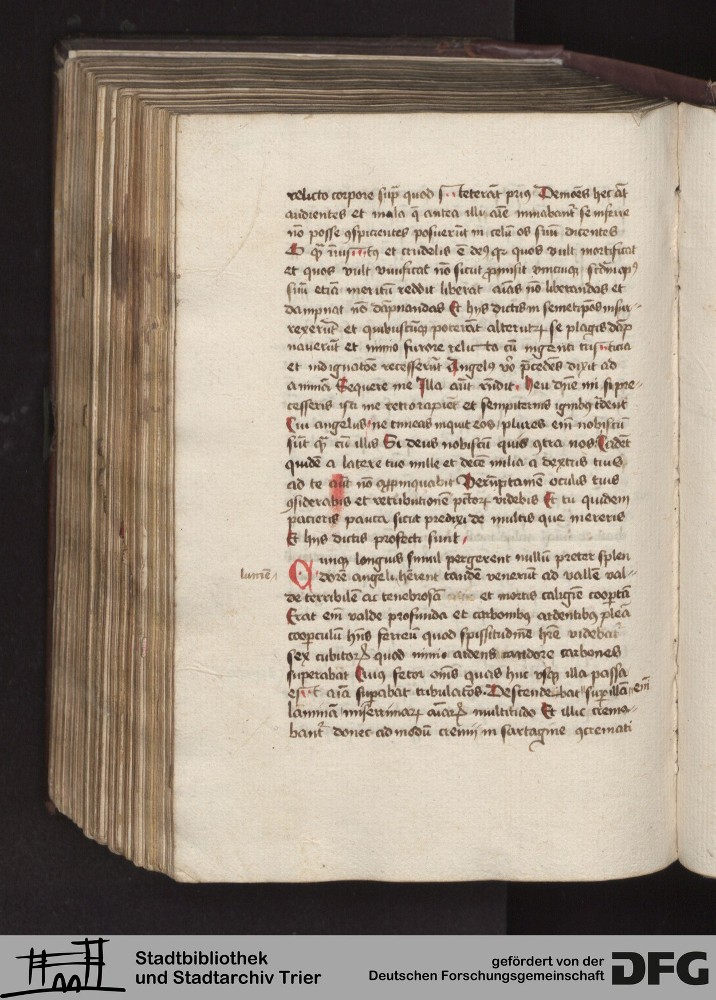 relicto corpore sup̄ quod s teterāt prius Demōes hec āt
audientes et mala q̄ antea illi aīe minabant̄ se inferre
nō posse ꝯspicientes posuerūt in celū os suū dicentes
O q̄ iniustꝰ et crudelis ē deꝰ qꝛ quos vult mortificat
et quos vult viuificat nō sicut promisit vnicuiqꝫ scdm opꝰ
suū etiā meritū reddit liberat aīas nō liberandas et
dampnat nō dāpnandas Et hijs dictis in semetip̄os insur-
rexerūt et quibuscūqꝫ poterāt alterutꝝ se plagis dāp
nauerūt et nimio furore relicto cū ingenti tristicia
et indignatōe recesserūt Angelꝰ v̄o p̄cedēs dixit ad
animā Sequere me Illa aūt rn̄dit Heu dn̄e mi si p̄re-
cesseris isti me retro rapiēt et sempiternis ignibꝰ t̄dent
Cui angelus ne timeas inquit eos plures em̄ nobiscū
sūt q̄ cū illis Si deus nobiscū quis ꝯtra nos Cadēt
quidē a latere tuo mille et decē milia a dextris tuis
ad te aūt nō app̄inquabit Verūptamen oculis tuis
ꝯsiderabis et retributionē pctoꝝ videbis Et tu quidem
pacieris pauca sicut predixi de multis que mereris
Et hijs dictis profecti sunt
Cunqꝫ longius simul pergerent nullū preter splen
lumē
dorē angeli h̄erent tandē venerūt ad vallē val-
de terribilē ac tenebrosā et mortis caligīe coop̄tā
Erat em̄ valde profunda et carbonibꝰ ardentibꝰ plēa
coop̄culū hn̄s ferreū quod spissitudinē h̄re videbat̄
sex cubitoꝝ quod nimio ardens candore carbones
superabat Cuius fetor om̄s quas huc vsqꝫ illa passa
est aīa sup̄abat tribulatōs Descendebat sup̄ illā em̄
laminā miserrimaꝝ aīarꝝ multitudo Et illic crema-
bant̄ donec ad modū cremij in sartagine ꝯcremati
Stadtbibliothek
und Stadtarchiv Trier
gefördert von der
Deutschen Forschungsgemeinschaft
DFG